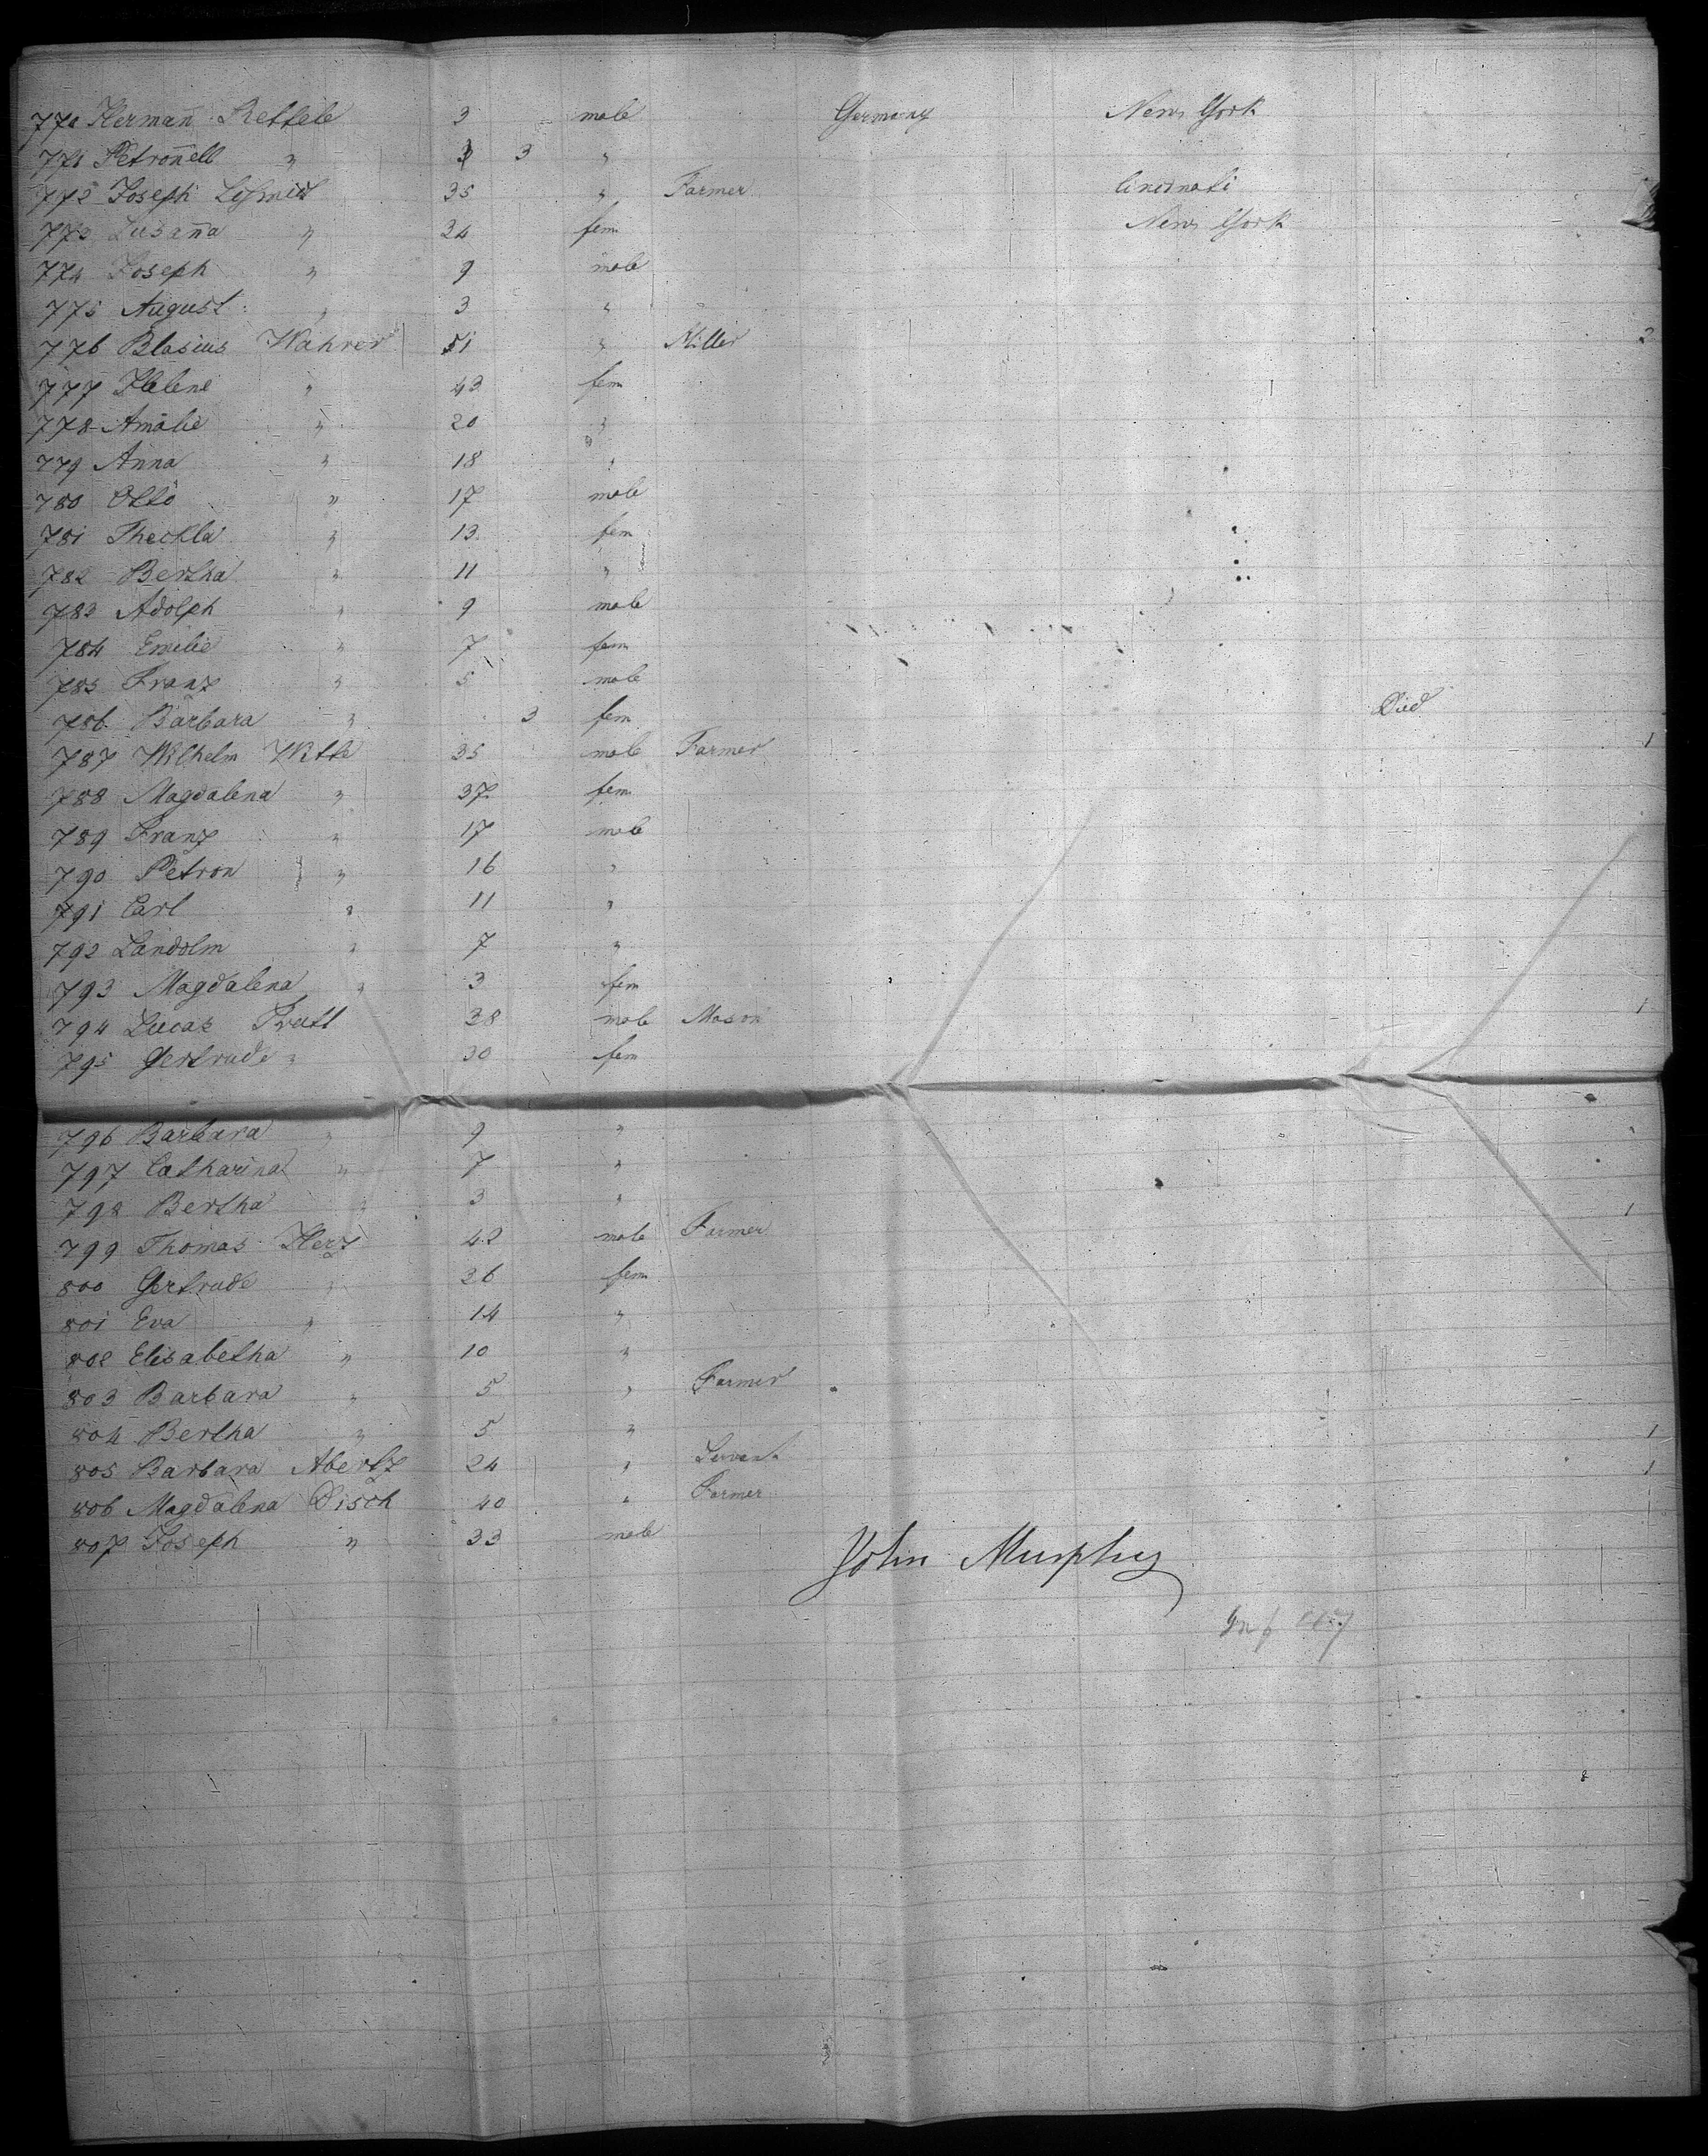 770 Hermañ Rettele 3 male Germany New York
771 Petroñell " 3 3 "
772 Joseph 35 " Farmer Cincinati
773 Susaña " 34 fem New York
774 Joseph " 9 male
775 August " 3 "
776 Blasius Wahrer 51 " Miller 2
777 Helene " 43 fem
778 Amalie " 20 "
779 Anna " 18 "
780 Otto " 17 male
781 Theckla " 13 fem
782 Bertha " 11 "
783 Adolph " 9 male
784 Emilie " 7 fem
785 Franz " 5 male
786 Barbara " 3 fem Died
787 Wilhelm Witte 35 male Farmer 1
788 Magdalena " 37 fem
789 Franz " 17 male
790 Petron " 16 "
791 Carl " 11 "
792 Landolm " 7 "
793 Magdalena " 3 fem
794 Lucas 38 male Mason 1
795 Gertrude " 30 fem
796 Barbara " 9 "
797 Catharina " 7 "
798 Bertha " 3 "
799 Thomas Herz 42 male Farmer 1
800 Gertrude " 36 fem
801 Eva " 14 "
802 Elisabetha " 10 "
803 Barbara " 5 " Farmer
804 Bertha " 5 " 1
805 Barbara Abertz 24 " Servant 1
806 Magdalena Disch 40 " Farmer
807 Joseph " 33 male
John Murphy